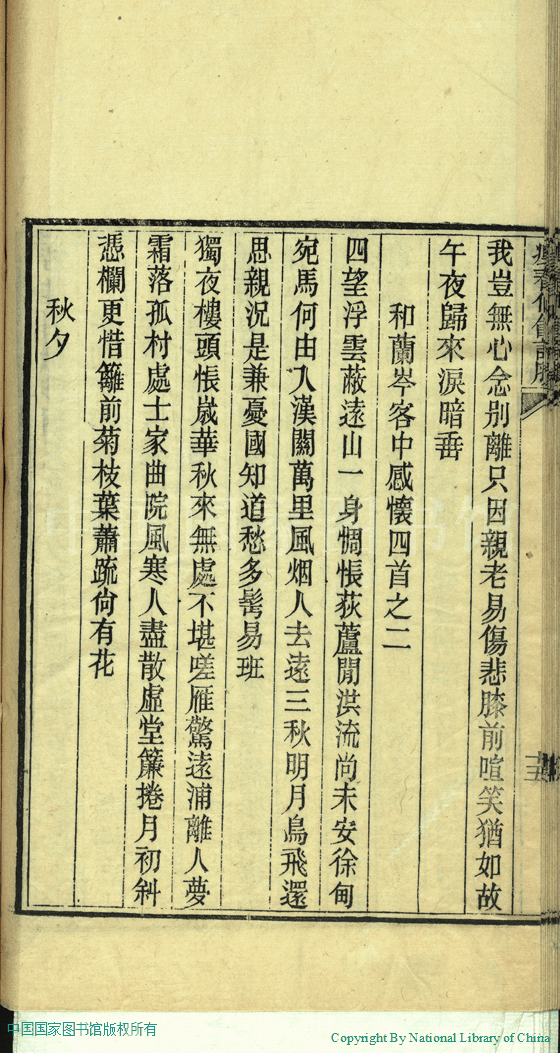 我豈無心念別離只因親老易傷悲膝前喧笑猶如故
午夜歸來淚暗垂
和蘭岑客中感懷四首之二
四望浮雲蔽遠山一身惆悵荻蘆閒洪流尚未安徐甸
宛馬何由入漢關萬里風烟人去遠三秋明月鳥飛還
思親況是兼憂國知道愁多髩易班
獨夜樓頭悵歲華秋來無處不堪嗟雁驚遠浦離人夢
霜落孤村處士家曲院風寒人盡散虛堂簾捲月初斜
憑欄更惜籬前菊枝葉蕭疏尙有花
秋夕
中国国家图书馆版权所有
Copyright By National Library of China